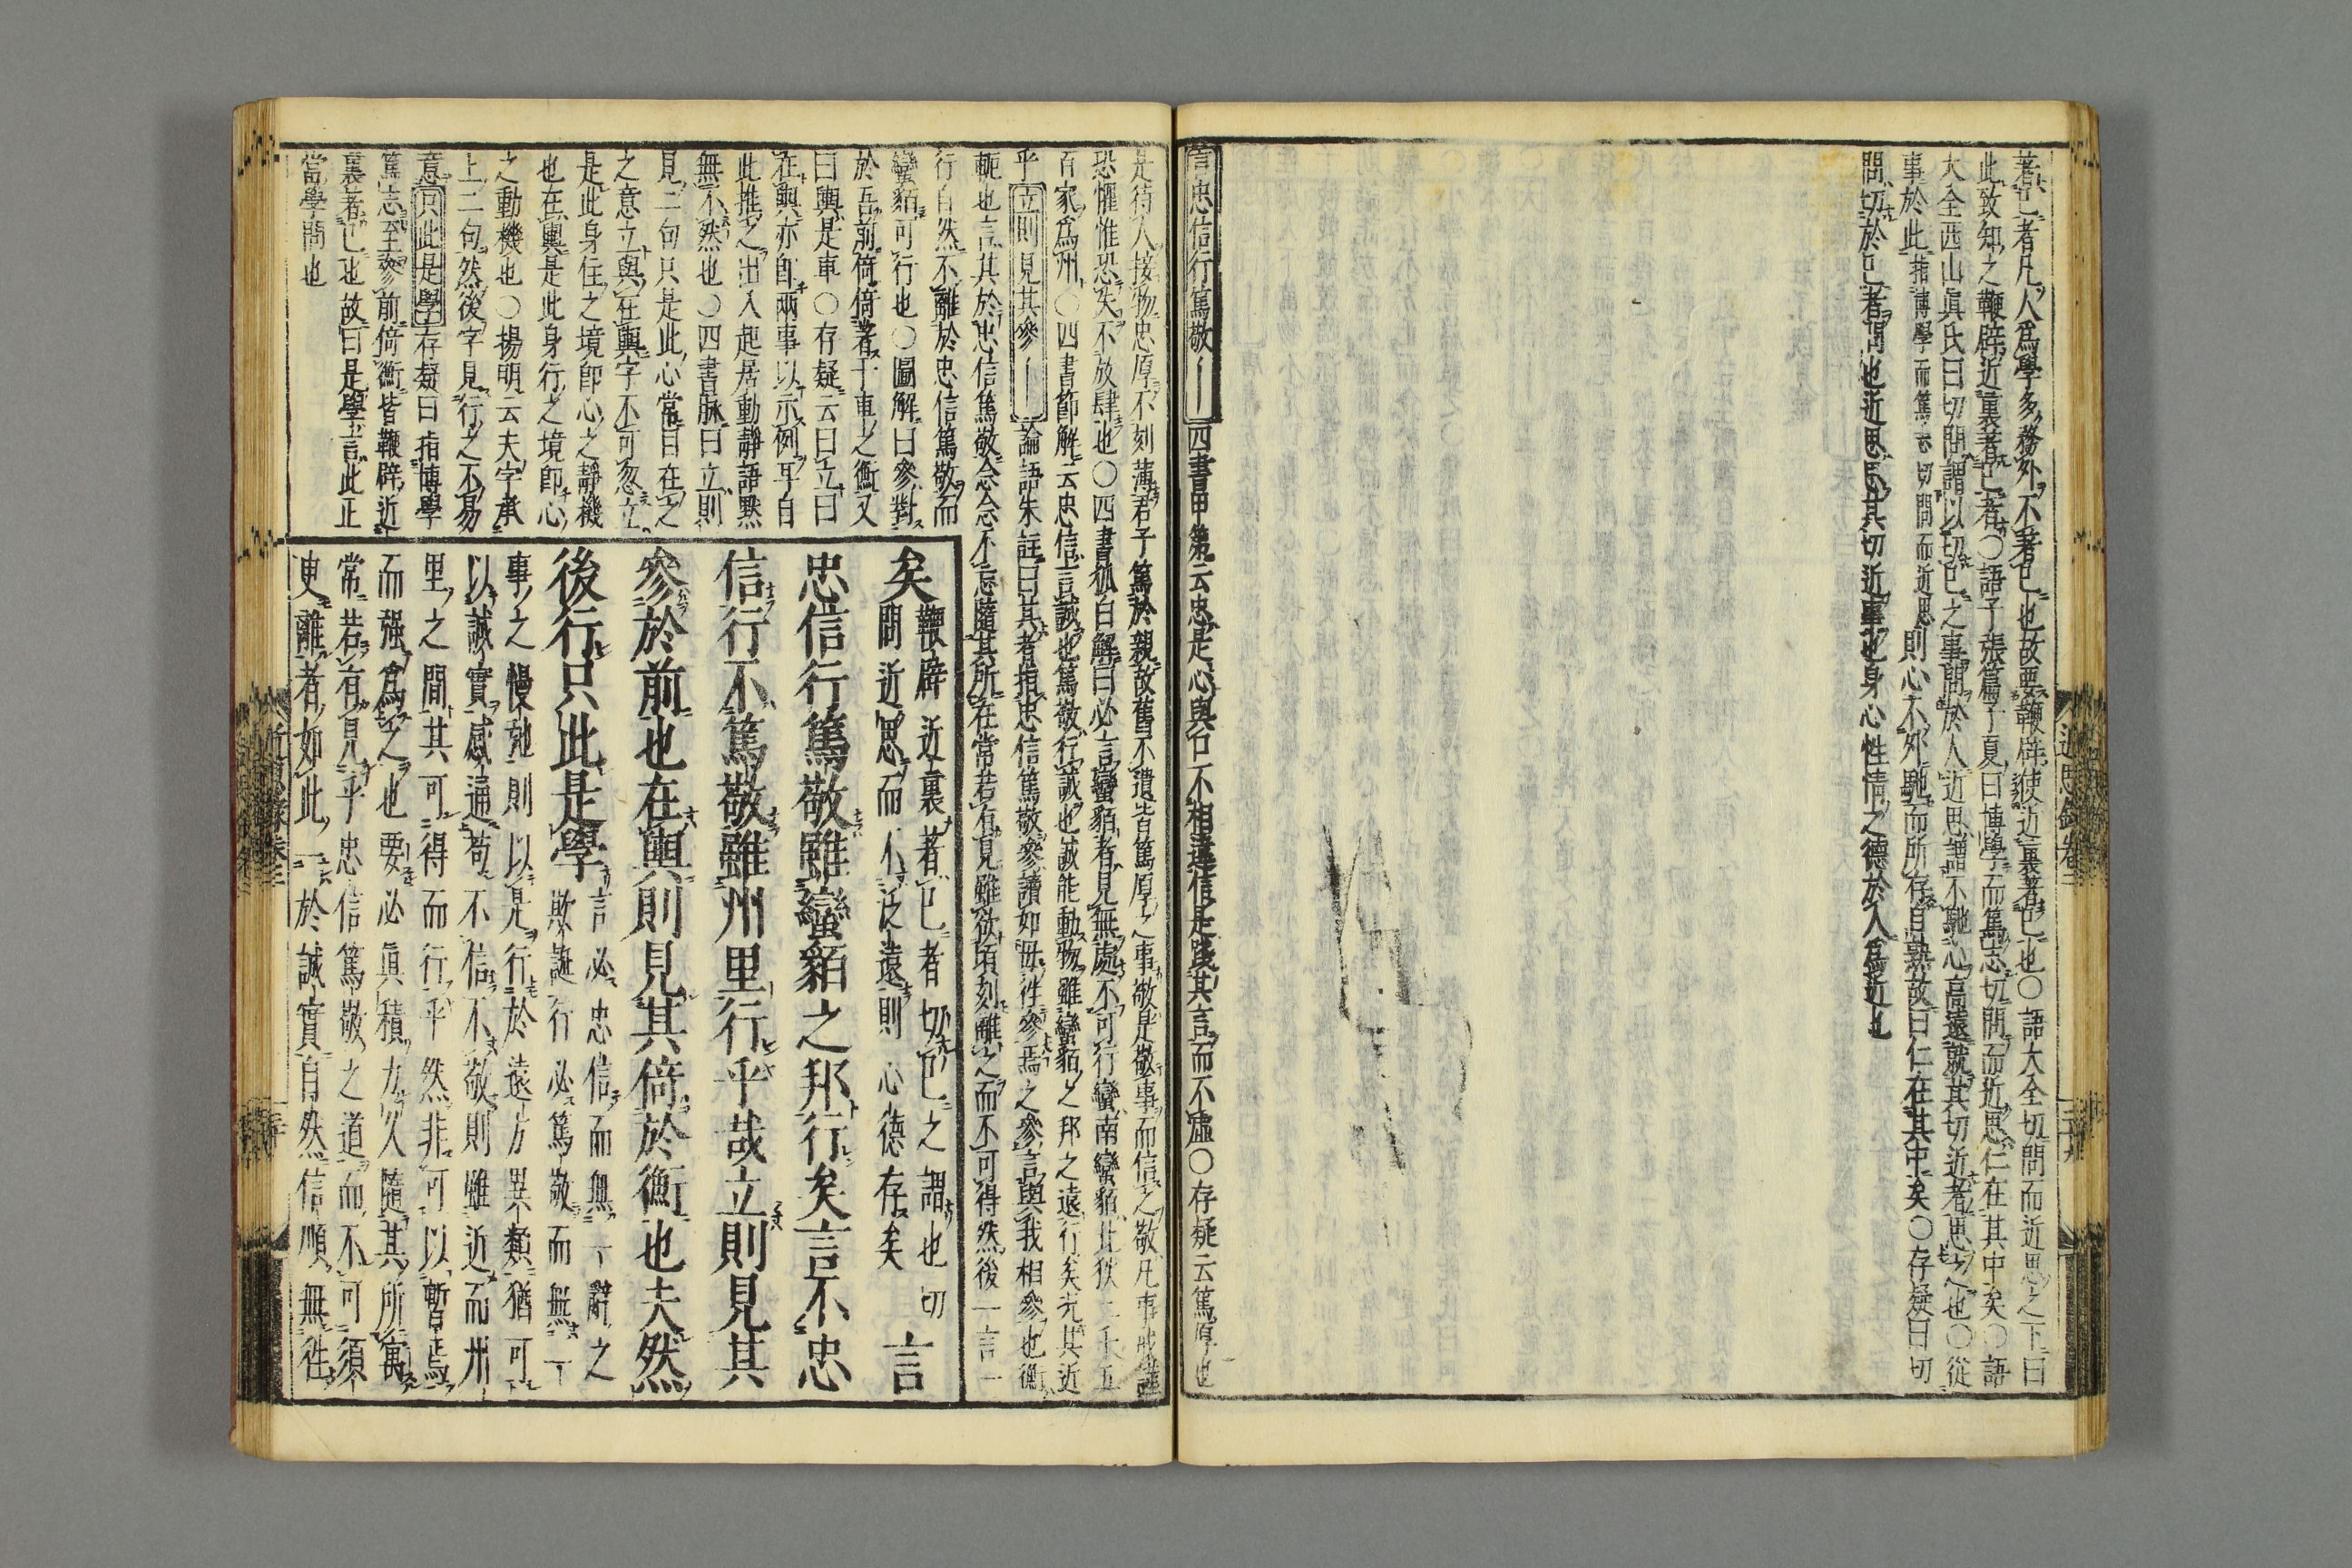 著已者凡人爲學多務外不著已也故要鞭辟使近裏著已也○語大全切問而近思之下曰
此致知之鞭辟近裏著已者○語子張篇子夏曰博學而篤志切問而近思仁在其中矣○語
大全西山眞氏曰切問謂以切已之事問於人近思謂不馳心高遠就其切近者思之也○從
事於此指博學而篤志切問而近思則心不外馳而所存自熟故曰仁在其中矣○存疑曰切
問切於已者問也近思思其切近事也身心性情之德於人爲近也
言忠信行篤敬｜四書甲第云忠是心與口不相違信是踐其言而不虛○存疑云篤厚也
是待人接物忠厚不刻薄君子篤於親故舊不遺皆篤厚之事敬是敬事而信之敬凡事戒謹
恐懼惟恐失不放肆也○四書狐白解曰必言蠻貊者見無處不可行蠻南蠻貊北狄二千五
百家爲州○四書節解云忠信言誠也篤敬行誠也誠能動物雖蠻貊之邦之遠行矣况其近
乎立則見其參｜論語朱註曰其者指忠信篤敬參讀如毋往參焉之參言與我相參也衡
軛也言其於忠信篤敬念念不忘隨其所在常若有見雖欲頃刻離之而不可得然後一言一
行自然不離於忠信篤敬而
蠻貊可行也○圖解曰參對
於吾前倚倚著于車之衡又
曰輿是車○存疑云曰立曰
在輿亦即兩事以示例耳自
此推之出入起居動靜語默
無不然也○四書脉曰立則
見二句只是此心常目在之
之意立與在輿字不可忽立
是此身住之境即心之靜機
也在輿是此身行之境即心
之動機也○揚明云夫字承
上二句然後字見行之不易
意只此是學存疑曰指博學
篤志至參前倚衡皆鞭辟近
裏著已也故曰是學言此正
當學問也
矣鞭辟近裏著已者切已之謂也切
問近思而不泛遠則心德存矣言
忠信行篤敬雖蠻貊之邦行矣言不忠
信行不篤敬雖州里行乎哉立則見其
參於前也在輿則見其倚於衡也夫然
後行只此是學言必忠信而無一辭之
欺誕行必篤敬而無一
事之慢弛則以是行於遠方異類猶可
以誠實感通苟不信不敬則雖近而州
里之間其可得而行乎然非可以暫焉
而強爲之也要必眞積力久隨其所寓
常若有見乎忠信篤敬之道而不可須
臾離者如此一於誠實自然信順無往
近思録卷二